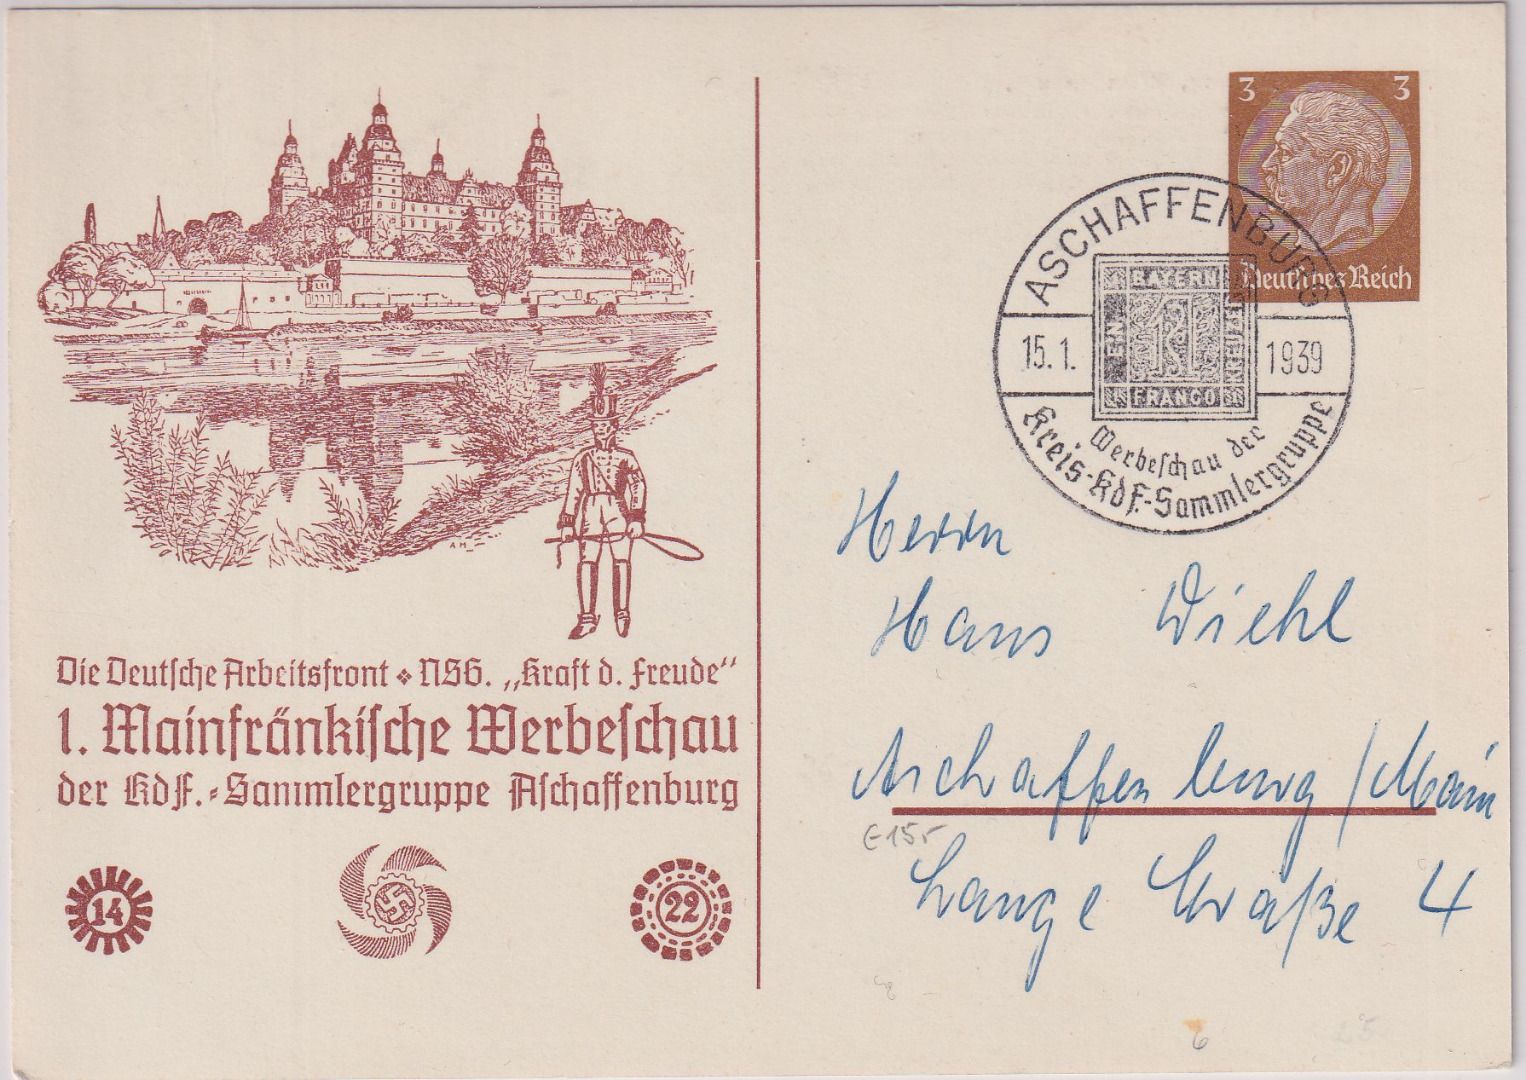 Die Deutsche Arbeitsfront ❖ NSG. „Kraft d. Freude“
1. Mainfränkische Werbeschau
der KdF.-Sammlergruppe Aschaffenburg
14
22
A H
3 3
Deutsches Reich
ASCHAFFENBURG
15.1. 1939
BAYERN
EIN
1
KREUZER
FRANCO
Werbeschau der
Kreis-KdF.-Sammlergruppe
Herrn
Hans Diehl
Aschaffenburg / Main
Lange Straße 4
E 15,-